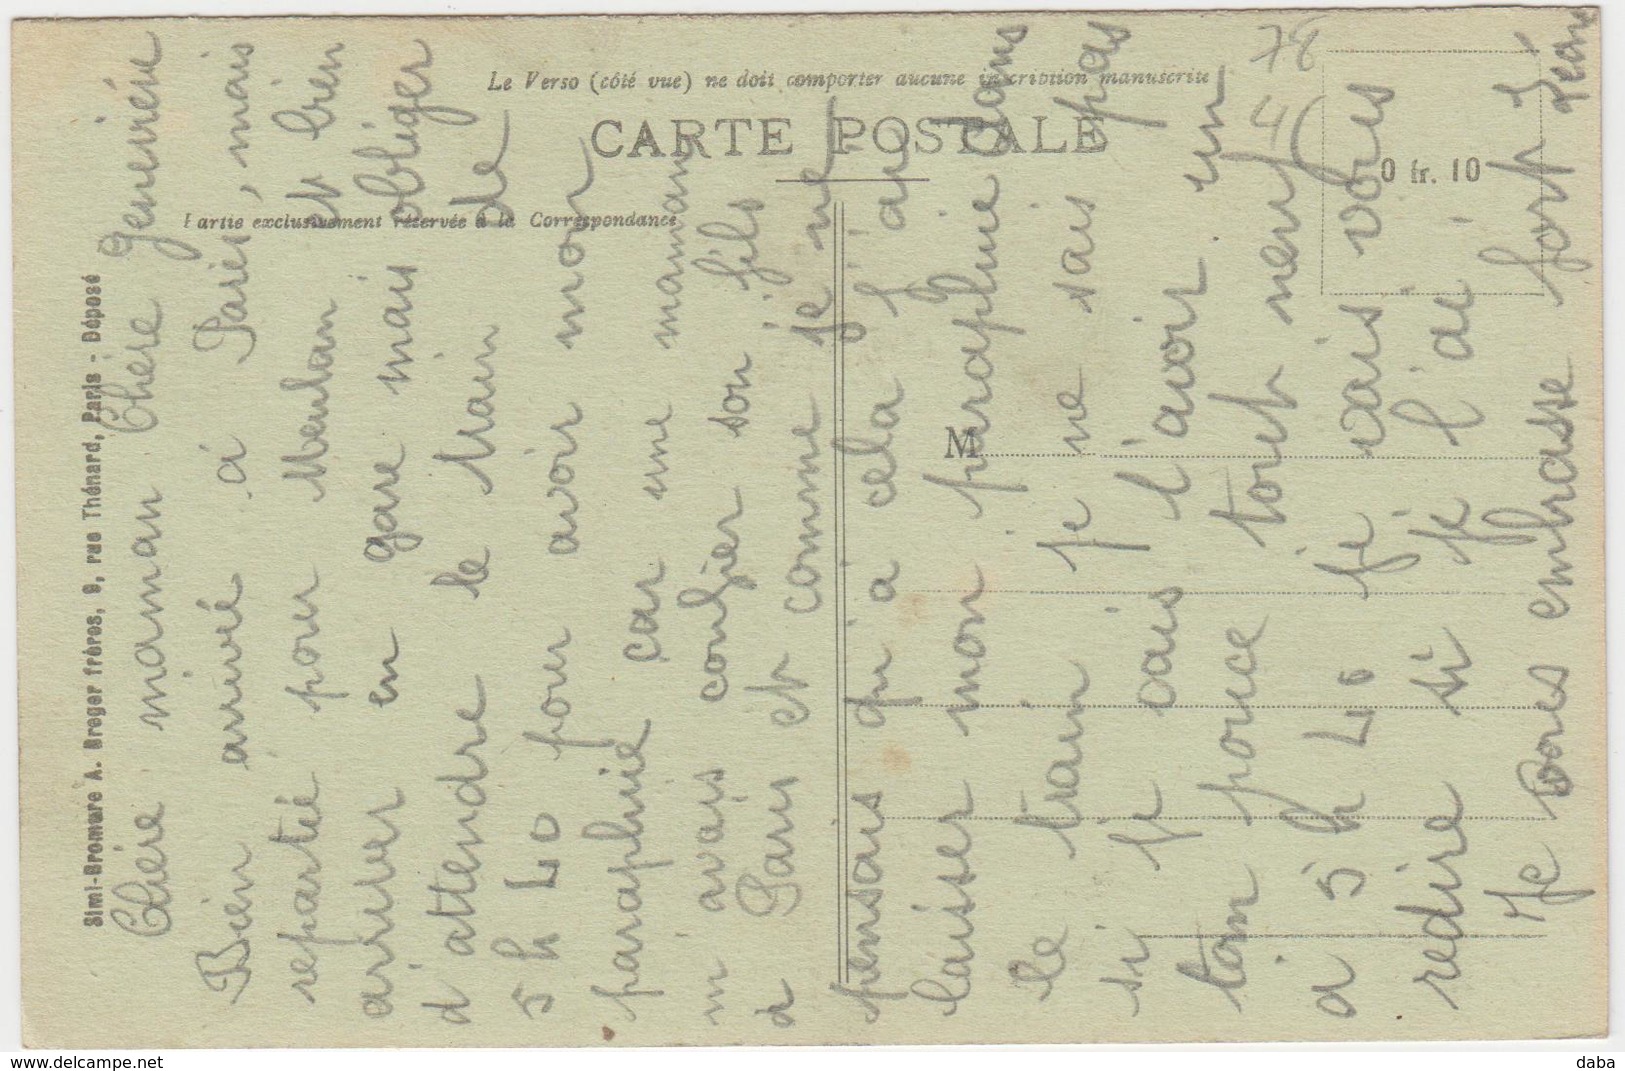 Le Verso (côté vue) ne doit comporter aucune inscription manuscrite
CARTE POSTALE
Partie exclusivement réservée à la Correspondance
0 fr. 10
M
Simi-Bromure A. Breger frères, 9, rue Thénard, Paris - Déposé
78
4
Chère maman Chère Geneviève
Bien arrivé à Paris, mais
repartie pour Meulan et bien
arriver en gare mais obliger
d'attendre le train de
5 h 40 pour avoir mon
paraphuie car une maman
m avais confier son fils
a Paris et comme je ne
pensais qu'a cela j'ai
laisser mon paraphuie dans
le train je ne sais pas
si je vais l'avoir un
tom pouce tout neuf
a 5 h 40 je vais vous
redire si je l'ai
Je vous embrasse fort fort
Jean
delcampe.net
daba